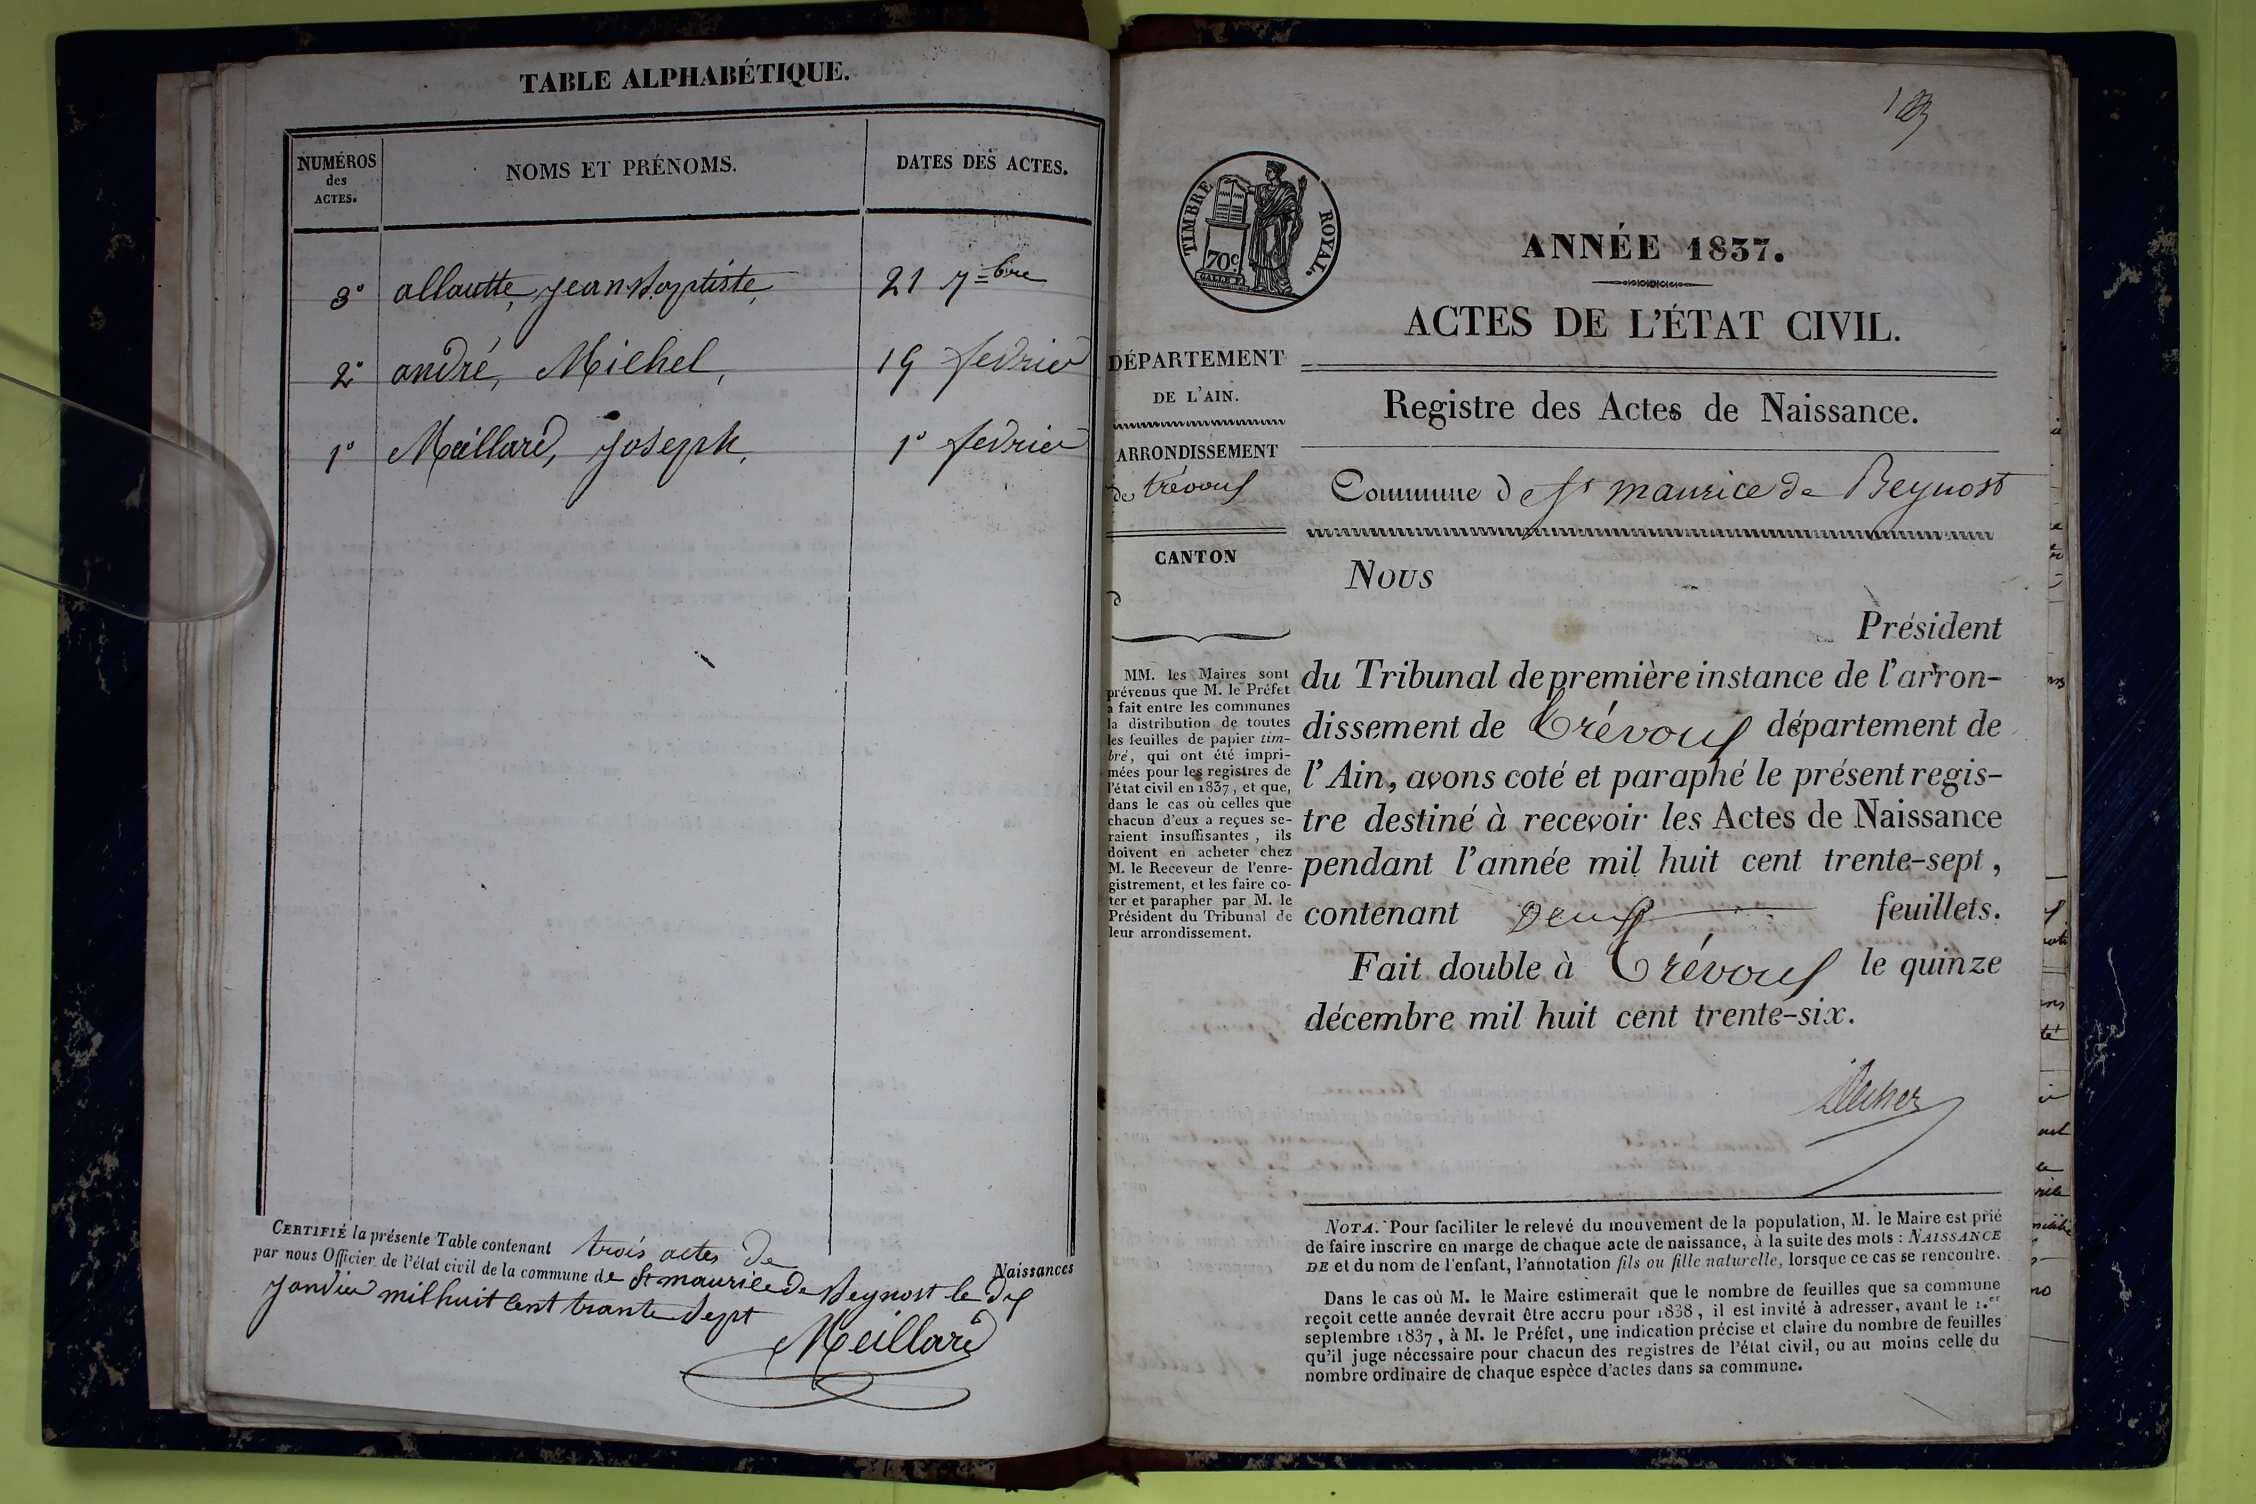 TABLE ALPHABÉTIQUE.
NUMÉROS
des
ACTES.
NOMS ET PRÉNOMS.
DATES DES ACTES.
3° allautte, jean baptiste, 21 7=bre
2° andré, Michel, 19 fevrier
1° Meillard, joseph, 1° fevrier
CERTIFIÉ la présente Table contenant trois actes de Naissances
par nous Officier de l'état civil de la commune de St maurice de beynost le dix
janvier mil huit cent trante sept
Meillard
TIMBRE ROYAL.
70c
ANNÉE 1837.
ACTES DE L'ÉTAT CIVIL.
Registre des Actes de Naissance.
Commune d e St maurice de Beynost
DÉPARTEMENT
DE L'AIN.
ARRONDISSEMENT
de trévoux
CANTON
d
MM. les Maires sont
prévenus que M. le Préfet
a fait entre les communes
la distribution de toutes
les feuilles de papier tim-
bré, qui ont été impri-
mées pour les registres de
l'état civil en 1837, et que,
dans le cas où celles que
chacun d'eux a reçues se-
raient insuffisantes, ils
doivent en acheter chez
M. le Receveur de l'enre-
gistrement, et les faire co-
ter et parapher par M. le
Président du Tribunal de
leur arrondissement.
Nous
Président
du Tribunal de première instance de l'arron-
dissement de Trévoux département de
l'Ain, avons coté et paraphé le présent regis-
tre destiné à recevoir les Actes de Naissance
pendant l'année mil huit cent trente-sept,
contenant Deux feuillets.
Fait double à Trévoux le quinze
décembre mil huit cent trente-six.
NOTA. Pour faciliter le relevé du mouvement de la population, M. le Maire est prié
de faire inscrire en marge de chaque acte de naissance, à la suite des mots : NAISSANCE
DE et du nom de l'enfant, l'annotation fils ou fille naturelle, lorsque ce cas se rencontre.
Dans le cas où M. le Maire estimerait que le nombre de feuilles que sa commune
reçoit cette année devrait être accru pour 1838, il est invité à adresser, avant le 1.er
septembre 1837, à M. le Préfet, une indication précise et claire du nombre de feuilles
qu'il juge nécessaire pour chacun des registres de l'état civil, ou au moins celle du
nombre ordinaire de chaque espèce d'actes dans sa commune.